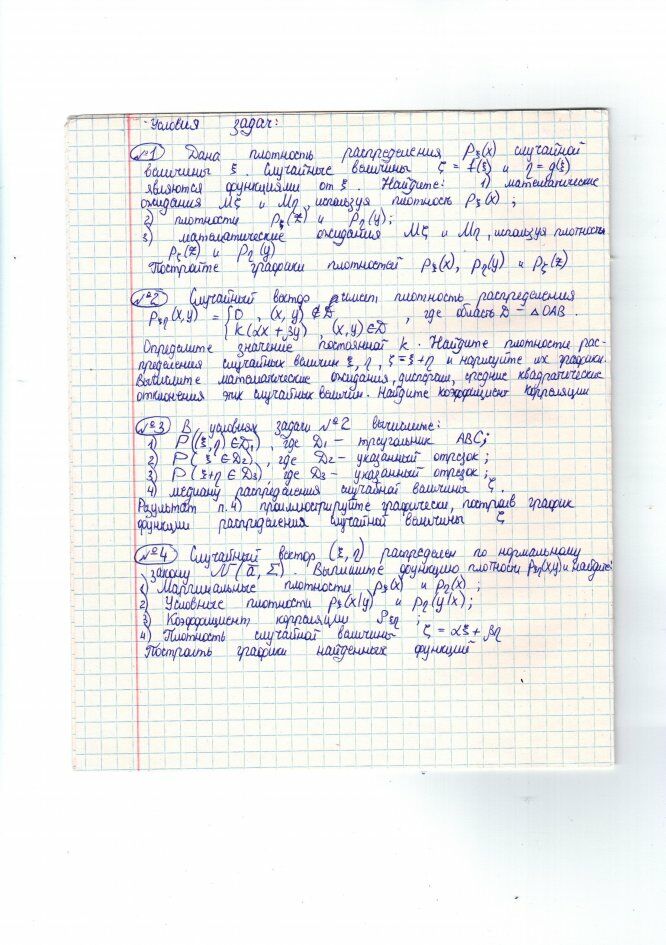 Условия задач:
№1 Дана плотность распределения p_ξ(x) случайной
величины ξ. Случайные величины ζ = f(ξ) и η = g(ξ)
являются функциями от ξ. Найдите: 1) математические
ожидания Mζ и Mη, используя плотность p_ξ(x);
2) плотности p_ζ(z) и p_η(y);
3) математические ожидания Mζ и Mη, используя плотность
p_ζ(z) и p_η(y)
Постройте графики плотностей p_ξ(x), p_η(y) и p_ζ(z)
№2 Случайный вектор имеет плотность распределения
p_ξη(x,y) = { 0, (x,y) ∉ D, где область D – △OAB.
k(αx + βy), (x,y) ∈ D
Определите значение постоянной k. Найдите плотности рас-
пределения случайных величин ξ, η, ζ = ξ + η и нарисуйте их графики.
Вычислите математические ожидания, дисперсии, средние квадратические
отклонения этих случайных величин. Найдите коэффициент корреляции
№3 В условиях задачи №2 вычислите:
1) P(ξ,η) ∈ D₁), где D₁ – треугольник ABC;
2) P(ξ ∈ D₂), где D₂ – указанный отрезок;
3) P(ξ+η ∈ D₃), где D₃ – указанный отрезок;
4) медиану распределения случайной величины ζ.
Результат п.4) проиллюстрируйте графически, построив график
функции распределения случайной величины ζ
№4 Случайный вектор (ξ, η) распределен по нормальному
закону N(a, Σ). Выпишите функцию плотности p_ξη(x,y) и найдите:
1) Маргинальные плотности p_ξ(x) и p_η(x);
2) Условные плотности p_ξ(x|y) и p_η(y|x);
3) Коэффициент корреляции ρ_ξη;
4) Плотность случайной величины ζ = αξ + βη
Построить графики найденных функций